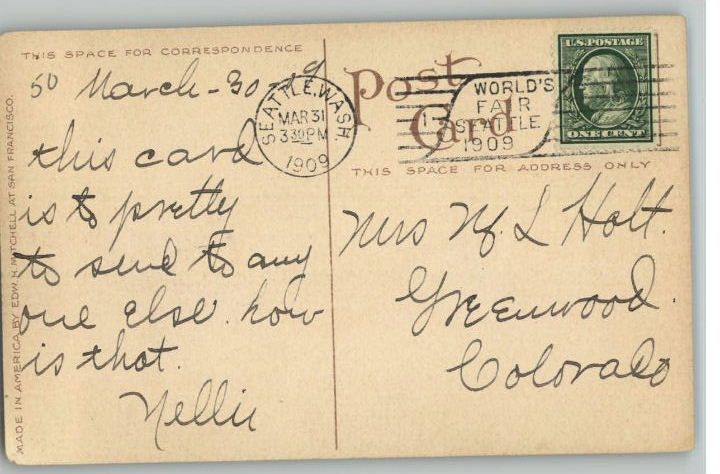 THIS SPACE FOR CORRESPONDENCE
50 March-30-09
this card
is to pretty
to send to any
one else. how
is that.
Nellie
MADE IN AMERICA BY EDW. H. MITCHELL AT SAN FRANCISCO.
Post
Card
SEATTLE, WASH.
MAR 31
3 30 PM
1909
1
WORLD'S
FAIR
SEATTLE
1909
U.S. POSTAGE
ONE CENT
THIS SPACE FOR ADDRESS ONLY
Mrs M L Holt.
Greenwood.
Colorado